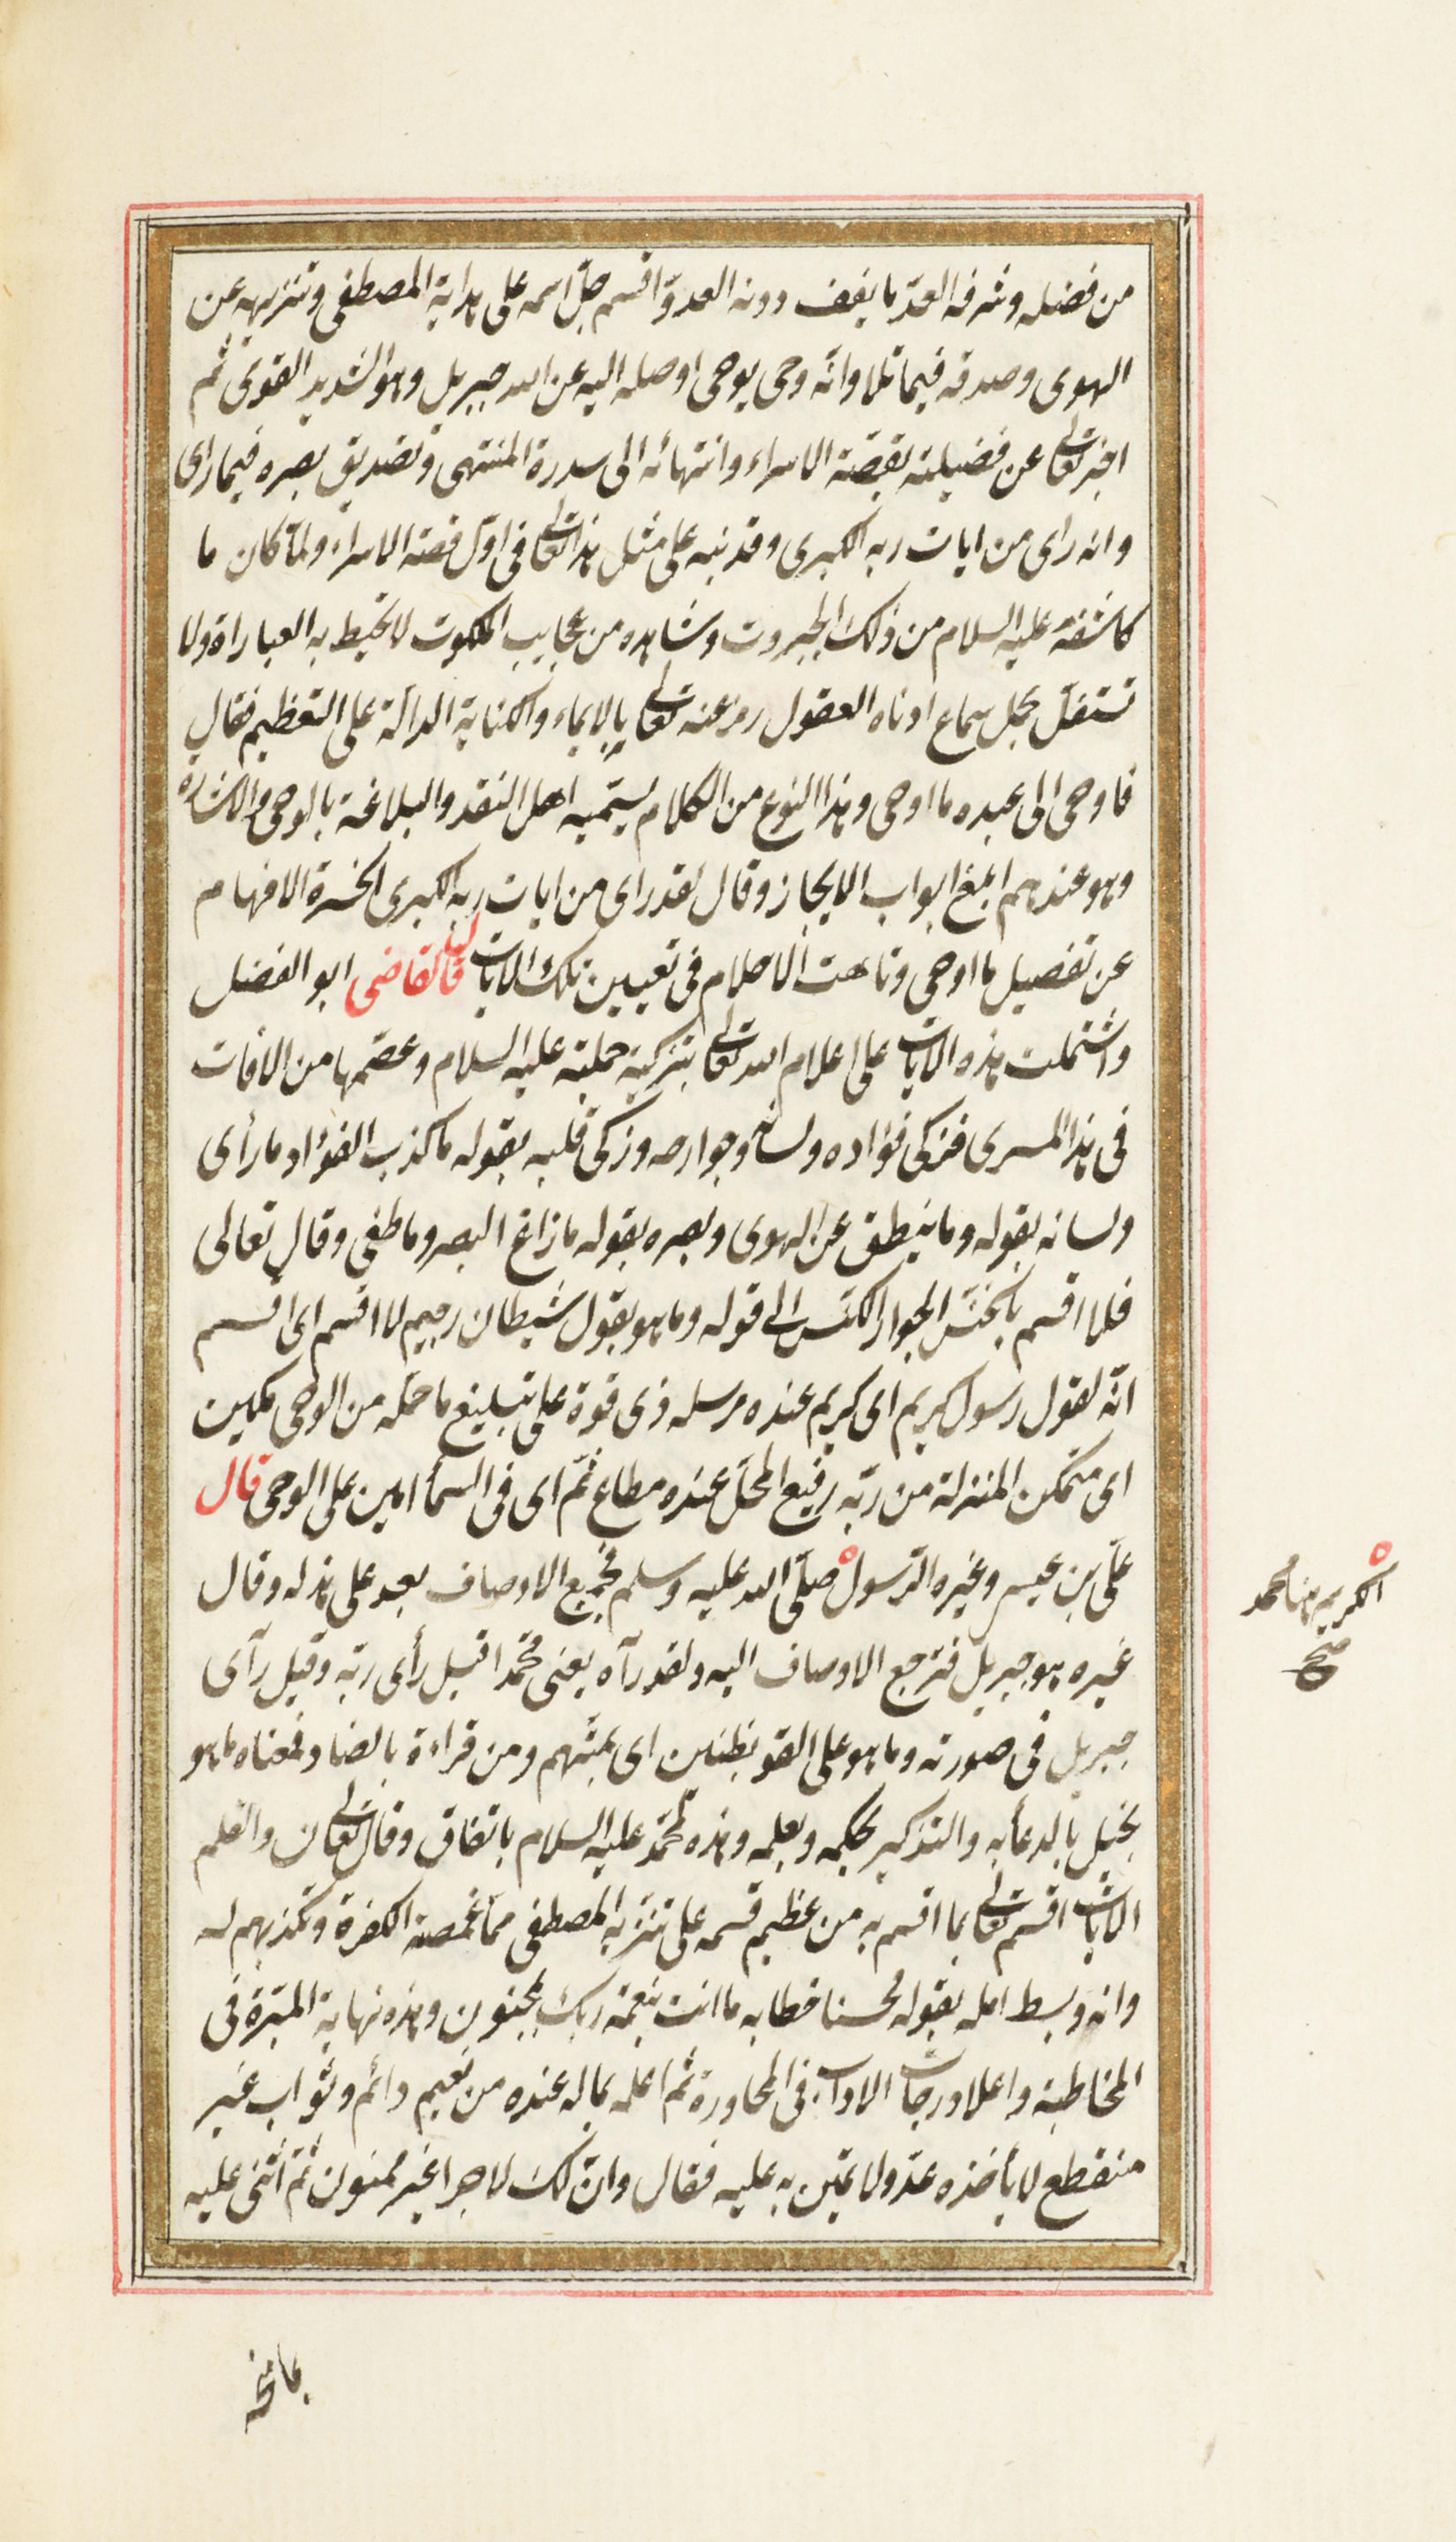 من فضله وشرفه العدّ ما يقف دونه العدوّ اقسم جلّ اسمه على هداية المصطفى وتنزيهه عن
الهوى وصدقه فيما تلا وانّه وحى يوحى اوصله اليه عن الله جبريل وهو الشديد القوى ثم
اخبر تعالى عن فضيلته بقصّة الاسراء وانتهائه الى سدرة المنتهى وتصديق بصره فيما راى
وانه راى من ايات ربه الكبرى وقد نبه على مثل هذا تعالى فى اوّل قصة الاسراء ولمّا كان ما
كاشفة عليه السلام من ذلك الجبروت وشاهده من عجايب الملكوت لا تحيط به العباراة ولا
تستقلّ بحمل سماع ادناه العقول رمز عنه تعالى بالايماء والكناية الدالّة على التعظيم فقال
فاوحى الى عبده ما اوحى وهذا النوع من الكلام يسمّيه اهل النقد والبلاغة بالوحى والاشارة
وهو عندهم ابلغ ابواب الايجاز وقال لقد راى من ايات ربه الكبرى انحسرة الافهام
عن تفصيل ما اوحى وتاهت الاحلام فى تعيين تلك الايات الكبرى قال القاضى ابو الفضل
واشتملت هذه الايات على اعلام الله تعالى بتزكية جملته عليه السلام وعصّمها من الافات
فى هذا المسرى فزكى فؤاده ولسانه وجوارحه وزكى قلبه بقوله ما كذب الفؤاد ما رأى
ولسانه بقوله وما ينطق عن الهوى وبصره بقوله ما زاغ البصر وما طغى وقال تعالى
فلا اقسم بالخنّس الجوار الكنّس الى قوله وما هو بقول شيطان رجيم لا اقسم اى اقسم
انّه لقول رسول كريم اى كريم عنده مرسله ذى قوة على تبليغ ما حمّله من الوحى مكين
اى متمكن المنزلة من ربّه رفيع المحلّ عنده مطاع ثمّ اى فى السمأ امين على الوحى قال
علّى بن عيسى وغيره الرّسول صلّى الله عليه وسلم فجميع الاوصاف بعد على هذا له وقال
غيره هو جبريل فترجع الاوصاف اليه ولقد رآه يعنى محمّدا قيل رأى ربّه وقيل رآى
جبريل فى صورته وما هو على الغيب بظنين اى بمتّهم ومن قراءة بالضاد فمعناه ما هو
بخيل بالدعأ به والتذكير بحكمه وبعلمه وهذه لمحمّد عليه السلام باتفاق وقال تعالى ن والقلم
الايات اقسم تعالى بما اقسم به من عظيم قسمه على تنزيه المصطفى ممّا غمصته الكفرة وتكذيبهم له
وانه وبسط امله بقوله محسنا خطابه ما انت بنعمة ربك بمجنون وهذه نهاية المبرّة فى
المخاطبة واعلا درجات الاداب فى المحاورة ثم اعلمه بما له عنده من نعيم دائم وثواب غير
منقطع لا يأخذه عدّ ولا يمتّن به عليه فقال وانّ لك لاجرا غير ممنون ثمّ اثنى عليه
الكريم هنا محمد
صح
بما منحه